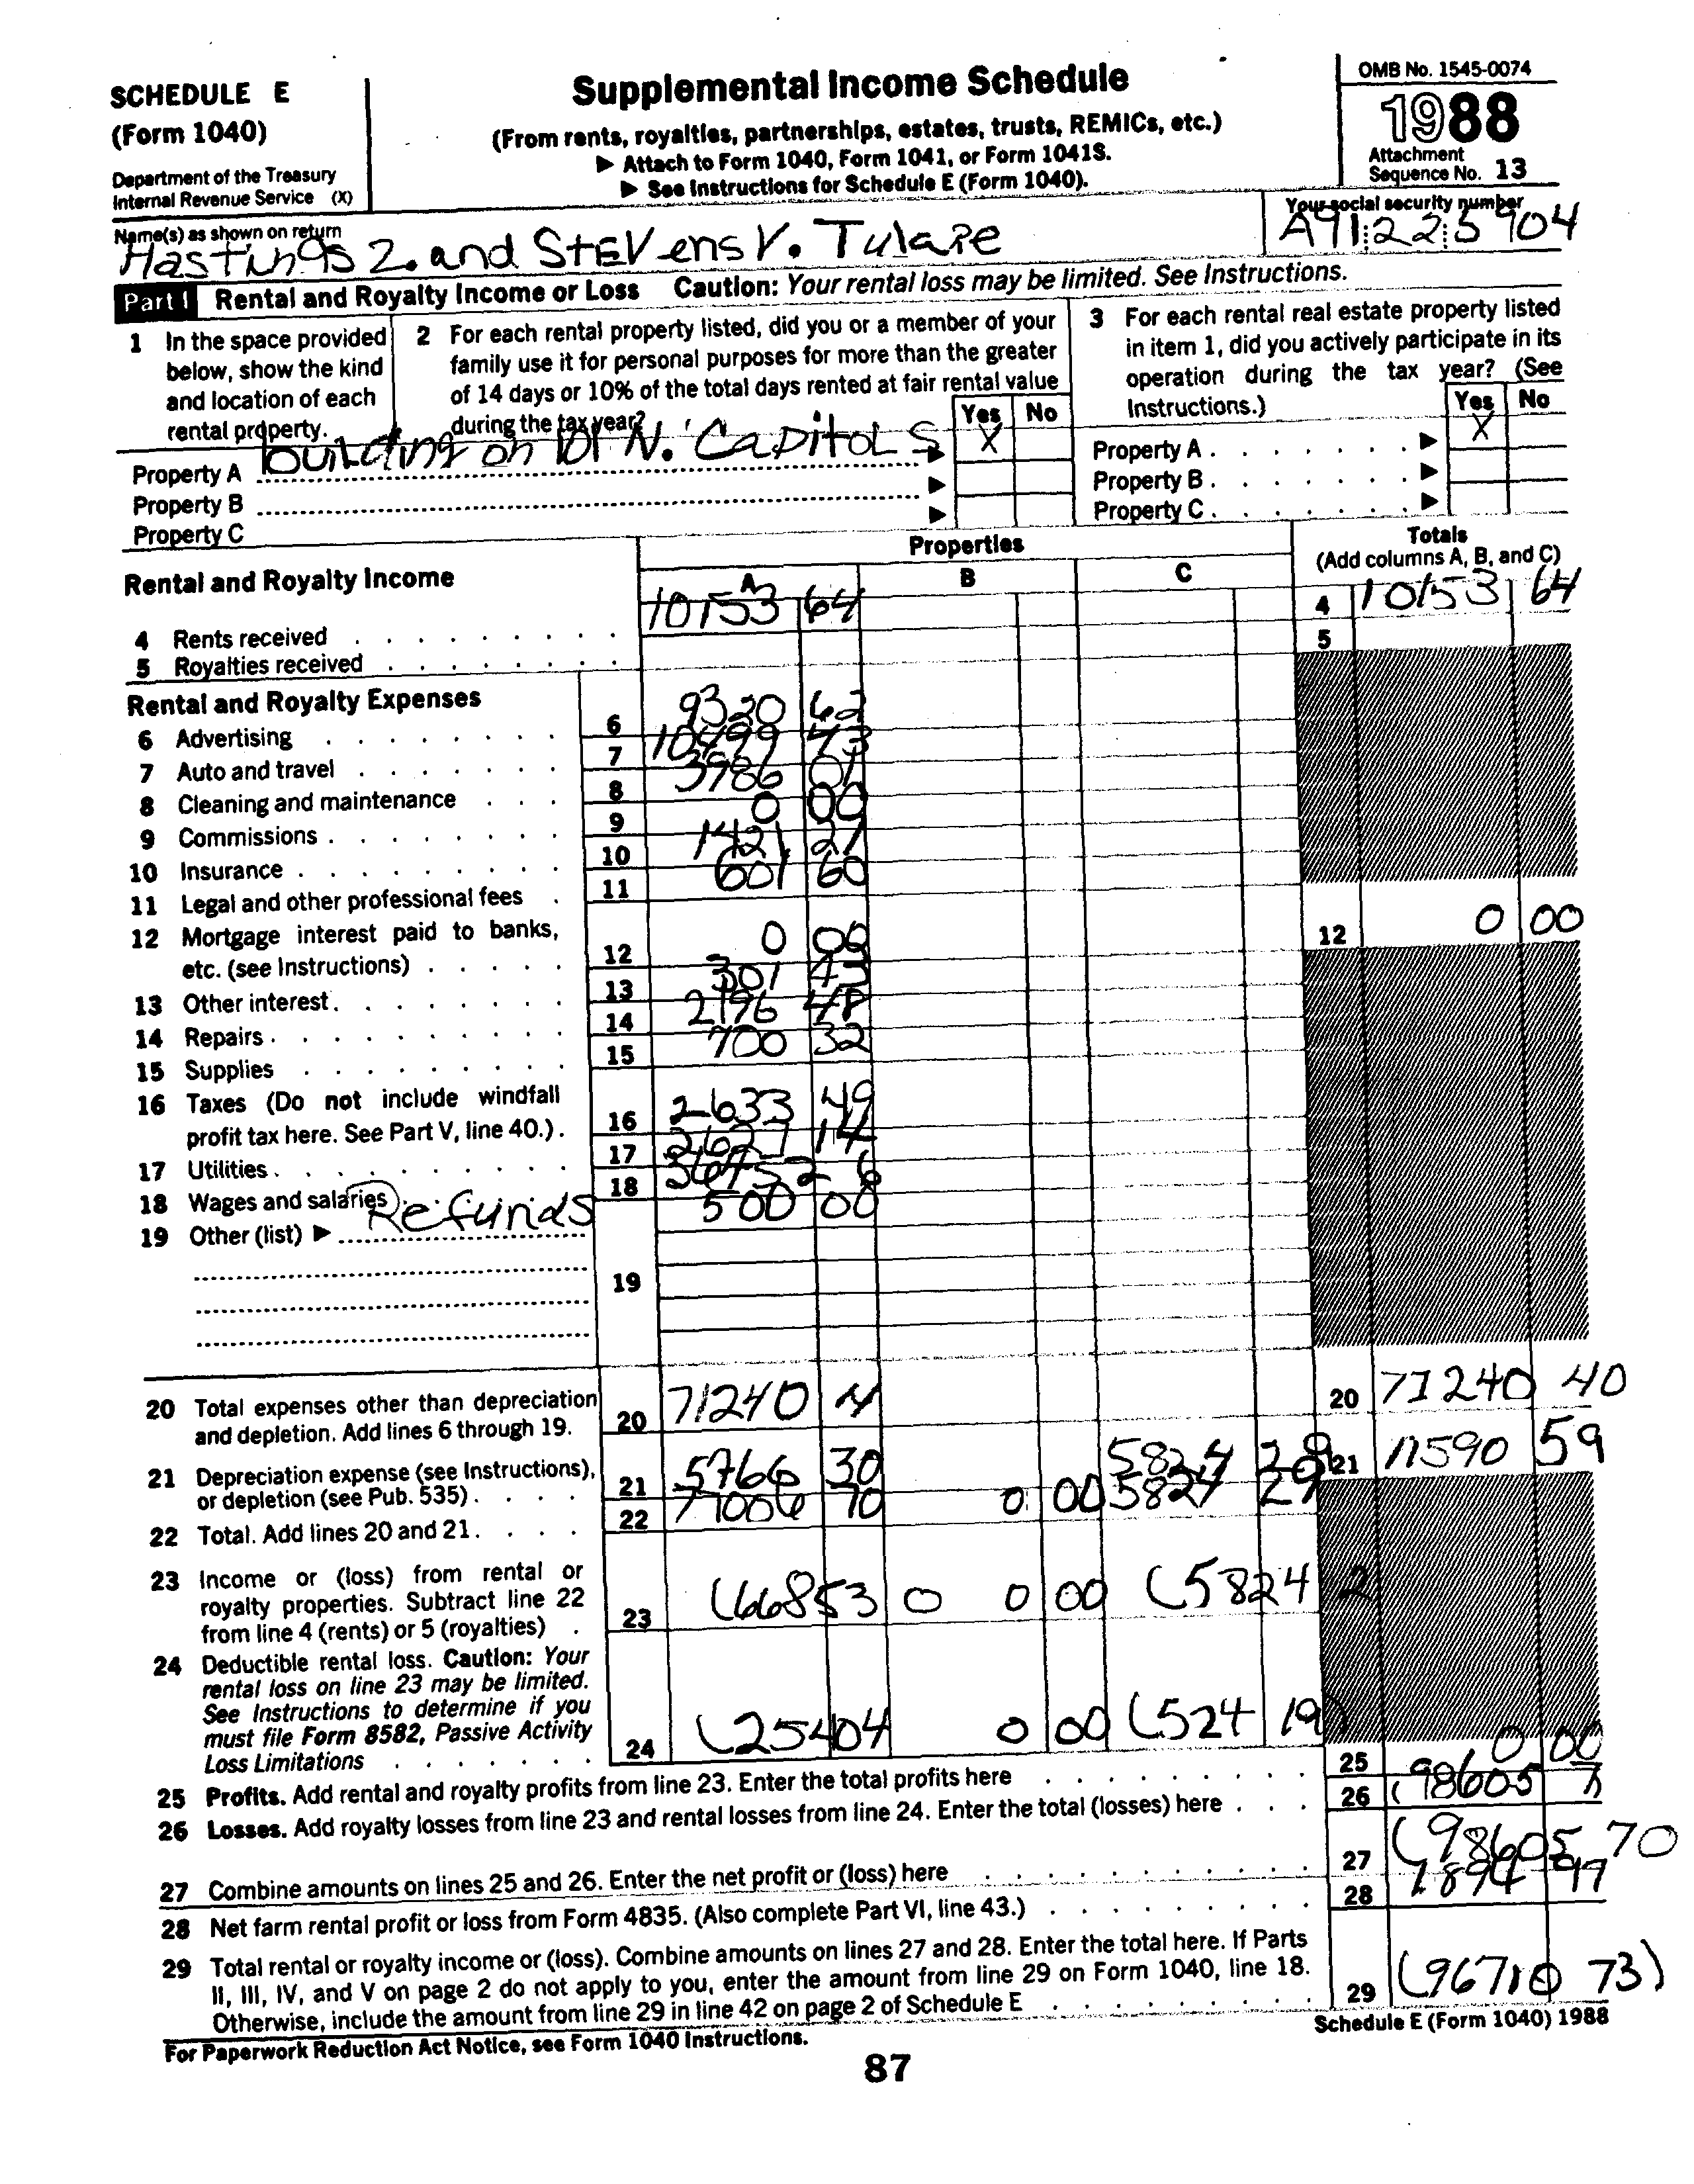 SCHEDULE E
(Form 1040)
Department of the Treasury
Internal Revenue Service (X)
Supplemental Income Schedule
(From rents, royalties, partnerships, estates, trusts, REMICs, etc.)
▶ Attach to Form 1040, Form 1041, or Form 1041S.
▶ See Instructions for Schedule E (Form 1040).
OMB No. 1545-0074
1988
Attachment
Sequence No. 13
Name(s) as shown on return
Hastings Z. and StEVens V. Tulare
Your social security number
A91 22 5904
Part I Rental and Royalty Income or Loss Caution: Your rental loss may be limited. See Instructions.
1 In the space provided
below, show the kind
and location of each
rental property.
2 For each rental property listed, did you or a member of your
family use it for personal purposes for more than the greater
of 14 days or 10% of the total days rented at fair rental value
during the tax year?
Yes No
3 For each rental real estate property listed
in item 1, did you actively participate in its
operation during the tax year? (See
Instructions.)
Yes No
Property A building on 101 N. CapitoL S ▶ X
Property B ▶
Property C ▶
Property A ▶ X
Property B ▶
Property C ▶
Properties
Totals
(Add columns A, B, and C)
Rental and Royalty Income
A B C
4 Rents received 10153 64 4 10153 64
5 Royalties received 5
Rental and Royalty Expenses
6 Advertising 6 9320 62
7 Auto and travel 7 10499 43
8 Cleaning and maintenance 8 3986 01
9 Commissions 9 0 00
10 Insurance 10 1421 27
11 Legal and other professional fees 11 601 60
12 Mortgage interest paid to banks,
etc. (see Instructions) 12 0 00 12 0 00
13 Other interest 13 301 43
14 Repairs 14 2196 48
15 Supplies 15 700 32
16 Taxes (Do not include windfall
profit tax here. See Part V, line 40.) 16 2633 49
17 Utilities 17 2627 14
18 Wages and salaries 18
19 Other (list) ▶ Refunds 500 00
19
20 Total expenses other than depreciation
and depletion. Add lines 6 through 19. 20 71240 4 20 71240 40
21 Depreciation expense (see Instructions),
or depletion (see Pub. 535) 21 5766 30 5824 29 21 11590 59
22 Total. Add lines 20 and 21 22 77006 70 0 00 5824 29
23 Income or (loss) from rental or
royalty properties. Subtract line 22
from line 4 (rents) or 5 (royalties) 23 (66853 0 0 00 (5824 2
24 Deductible rental loss. Caution: Your
rental loss on line 23 may be limited.
See Instructions to determine if you
must file Form 8582, Passive Activity
Loss Limitations 24 (25404 0 00 (524 19)
25 Profits. Add rental and royalty profits from line 23. Enter the total profits here 25 0 00
26 Losses. Add royalty losses from line 23 and rental losses from line 24. Enter the total (losses) here 26 (98605 7
27 Combine amounts on lines 25 and 26. Enter the net profit or (loss) here 27 (98605 70
28 Net farm rental profit or loss from Form 4835. (Also complete Part VI, line 43.) 28 1894 97
29 Total rental or royalty income or (loss). Combine amounts on lines 27 and 28. Enter the total here. If Parts
II, III, IV, and V on page 2 do not apply to you, enter the amount from line 29 on Form 1040, line 18.
Otherwise, include the amount from line 29 in line 42 on page 2 of Schedule E 29 (96710 73)
For Paperwork Reduction Act Notice, see Form 1040 Instructions.
Schedule E (Form 1040) 1988
87